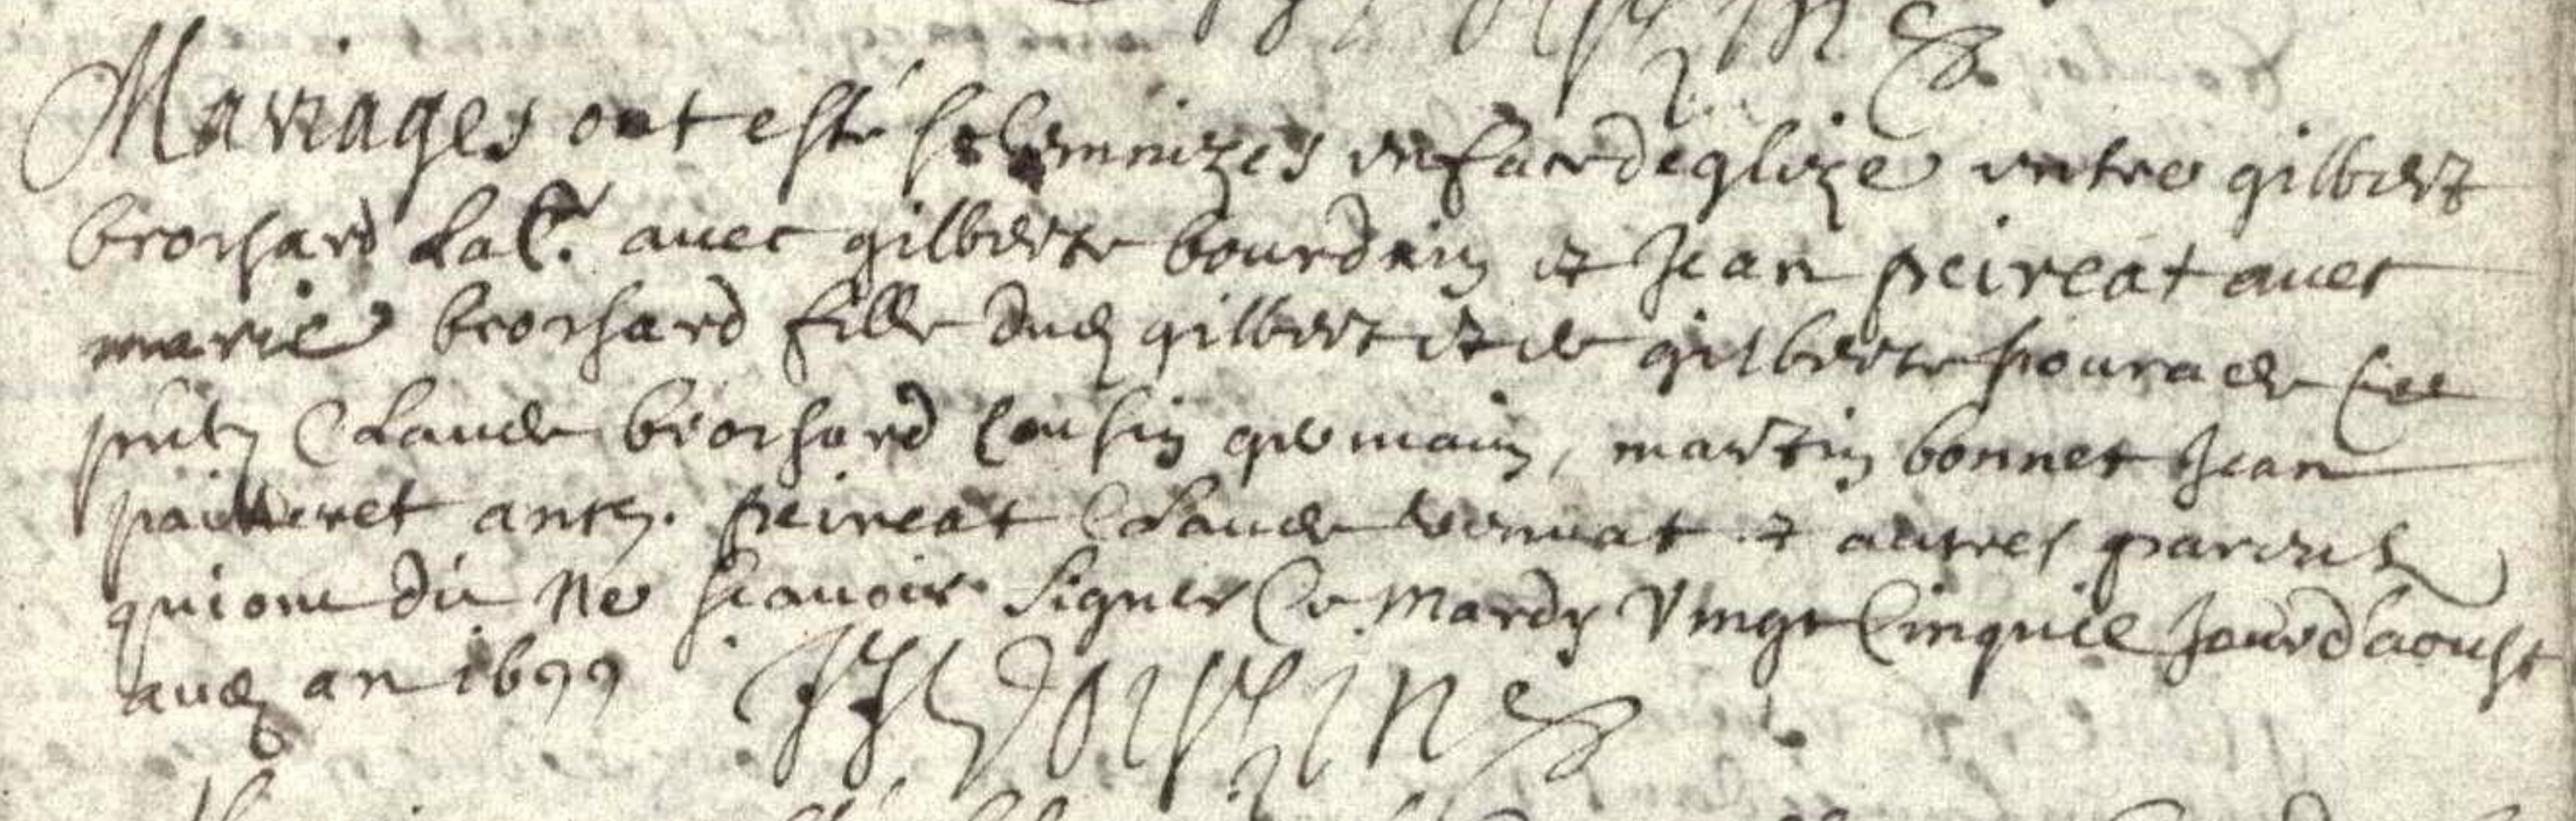 Mariages ont esté solemnizes en face deglize entre gilbert
brochard lab.r avec gilberte bourdein et Jean peireat avec
marie brochard fille dud gilbert et de gilberte pourade
pntz Claude brochard cousin germain, martin bonnet Jean
ant. peireat Claude et autres parens
qui ont dit ne scavoir signer Ce Mardy Vingt Cinquie Jour d'aoust
aud an 1699